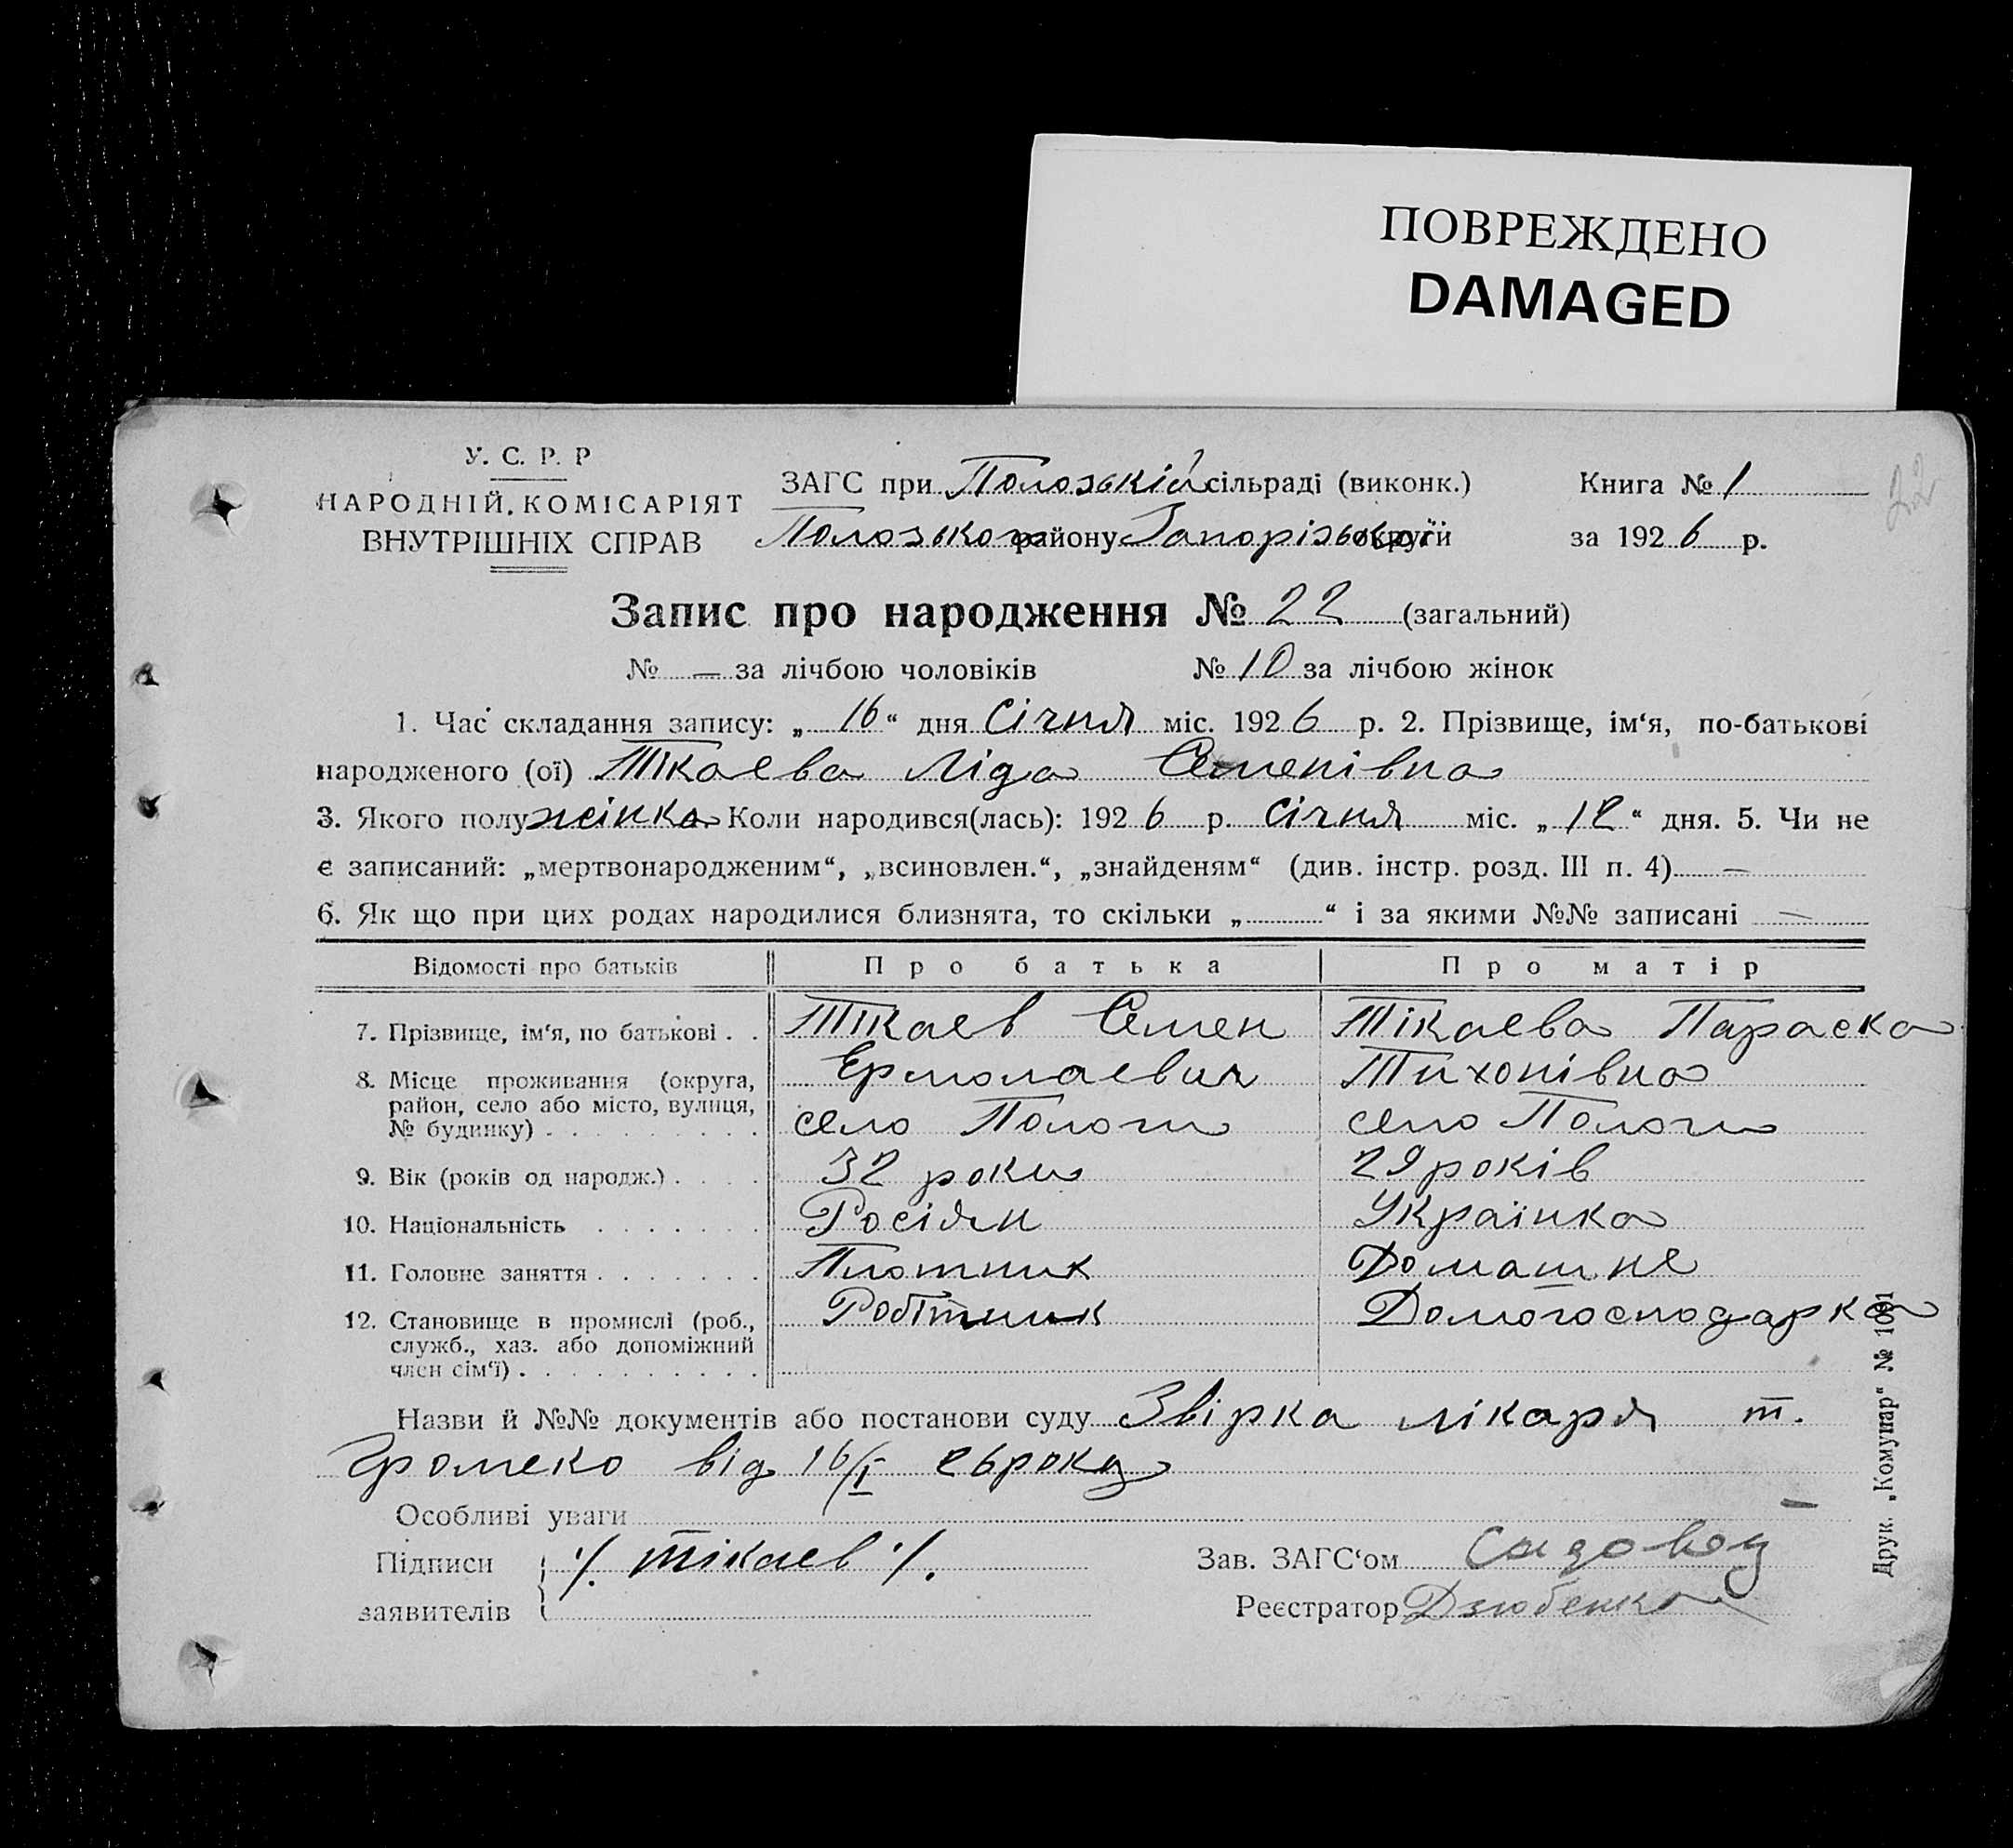 ПОВРЕЖДЕНО
DAMAGED
22
У. С. Р. Р
НАРОДНІЙ КОМІСАРІЯТ
ВНУТРІШНІХ СПРАВ
ЗАГС при Пологській сільраді (виконк.)
Пологського району Запорізької округи
Книга № 1
за 1926 р.
Запис про народження № 22 (загальний)
№ — за лічбою чоловіків № 10 за лічбою жінок
1. Час складання запису: „16“ дня Січня міс. 1926 р. 2. Прізвище, ім‘я, по-батькові
народженого (ої) Тікаева Ліда Семенівна
3. Якого полу жінка Коли народився(лась): 1926 р. Січня міс. „12“ дня. 5. Чи не
є записаний: „мертвонародженим“, „всиновлен.“, „знайденям“ (див. інстр. розд. III п. 4) —
6. Як що при цих родах народилися близнята, то скільки „ “ і за якими №№ записані —
Відомості про батьків Про батька Про матір
7. Прізвище, ім‘я, по батькові . . Тікаев Семен Тікаева Параска
Ермолаевич Тихонівна
8. Місце проживання (округа,
район, село або місто, вулиця,
№ будинку) село Пологи село Пологи
9. Вік (років од народж.) 32 роки 29 років
10. Національність Росіян Українка
11. Головне заняття Плотник Домашне
12. Становище в промислі (роб.,
служб., хаз. або допоміжний
член сім‘ї) Робітник Домогосподарка
Назви й №№ документів або постанови суду Звірка лікаря т.
Громеко від 16/I 26 року
Особливі уваги —
Підписи ./. Тікаев ./.
заявителів
Зав. ЗАГС‘ом
Реєстратор Дзюбенко
Друк. „Комунар“ № 1091